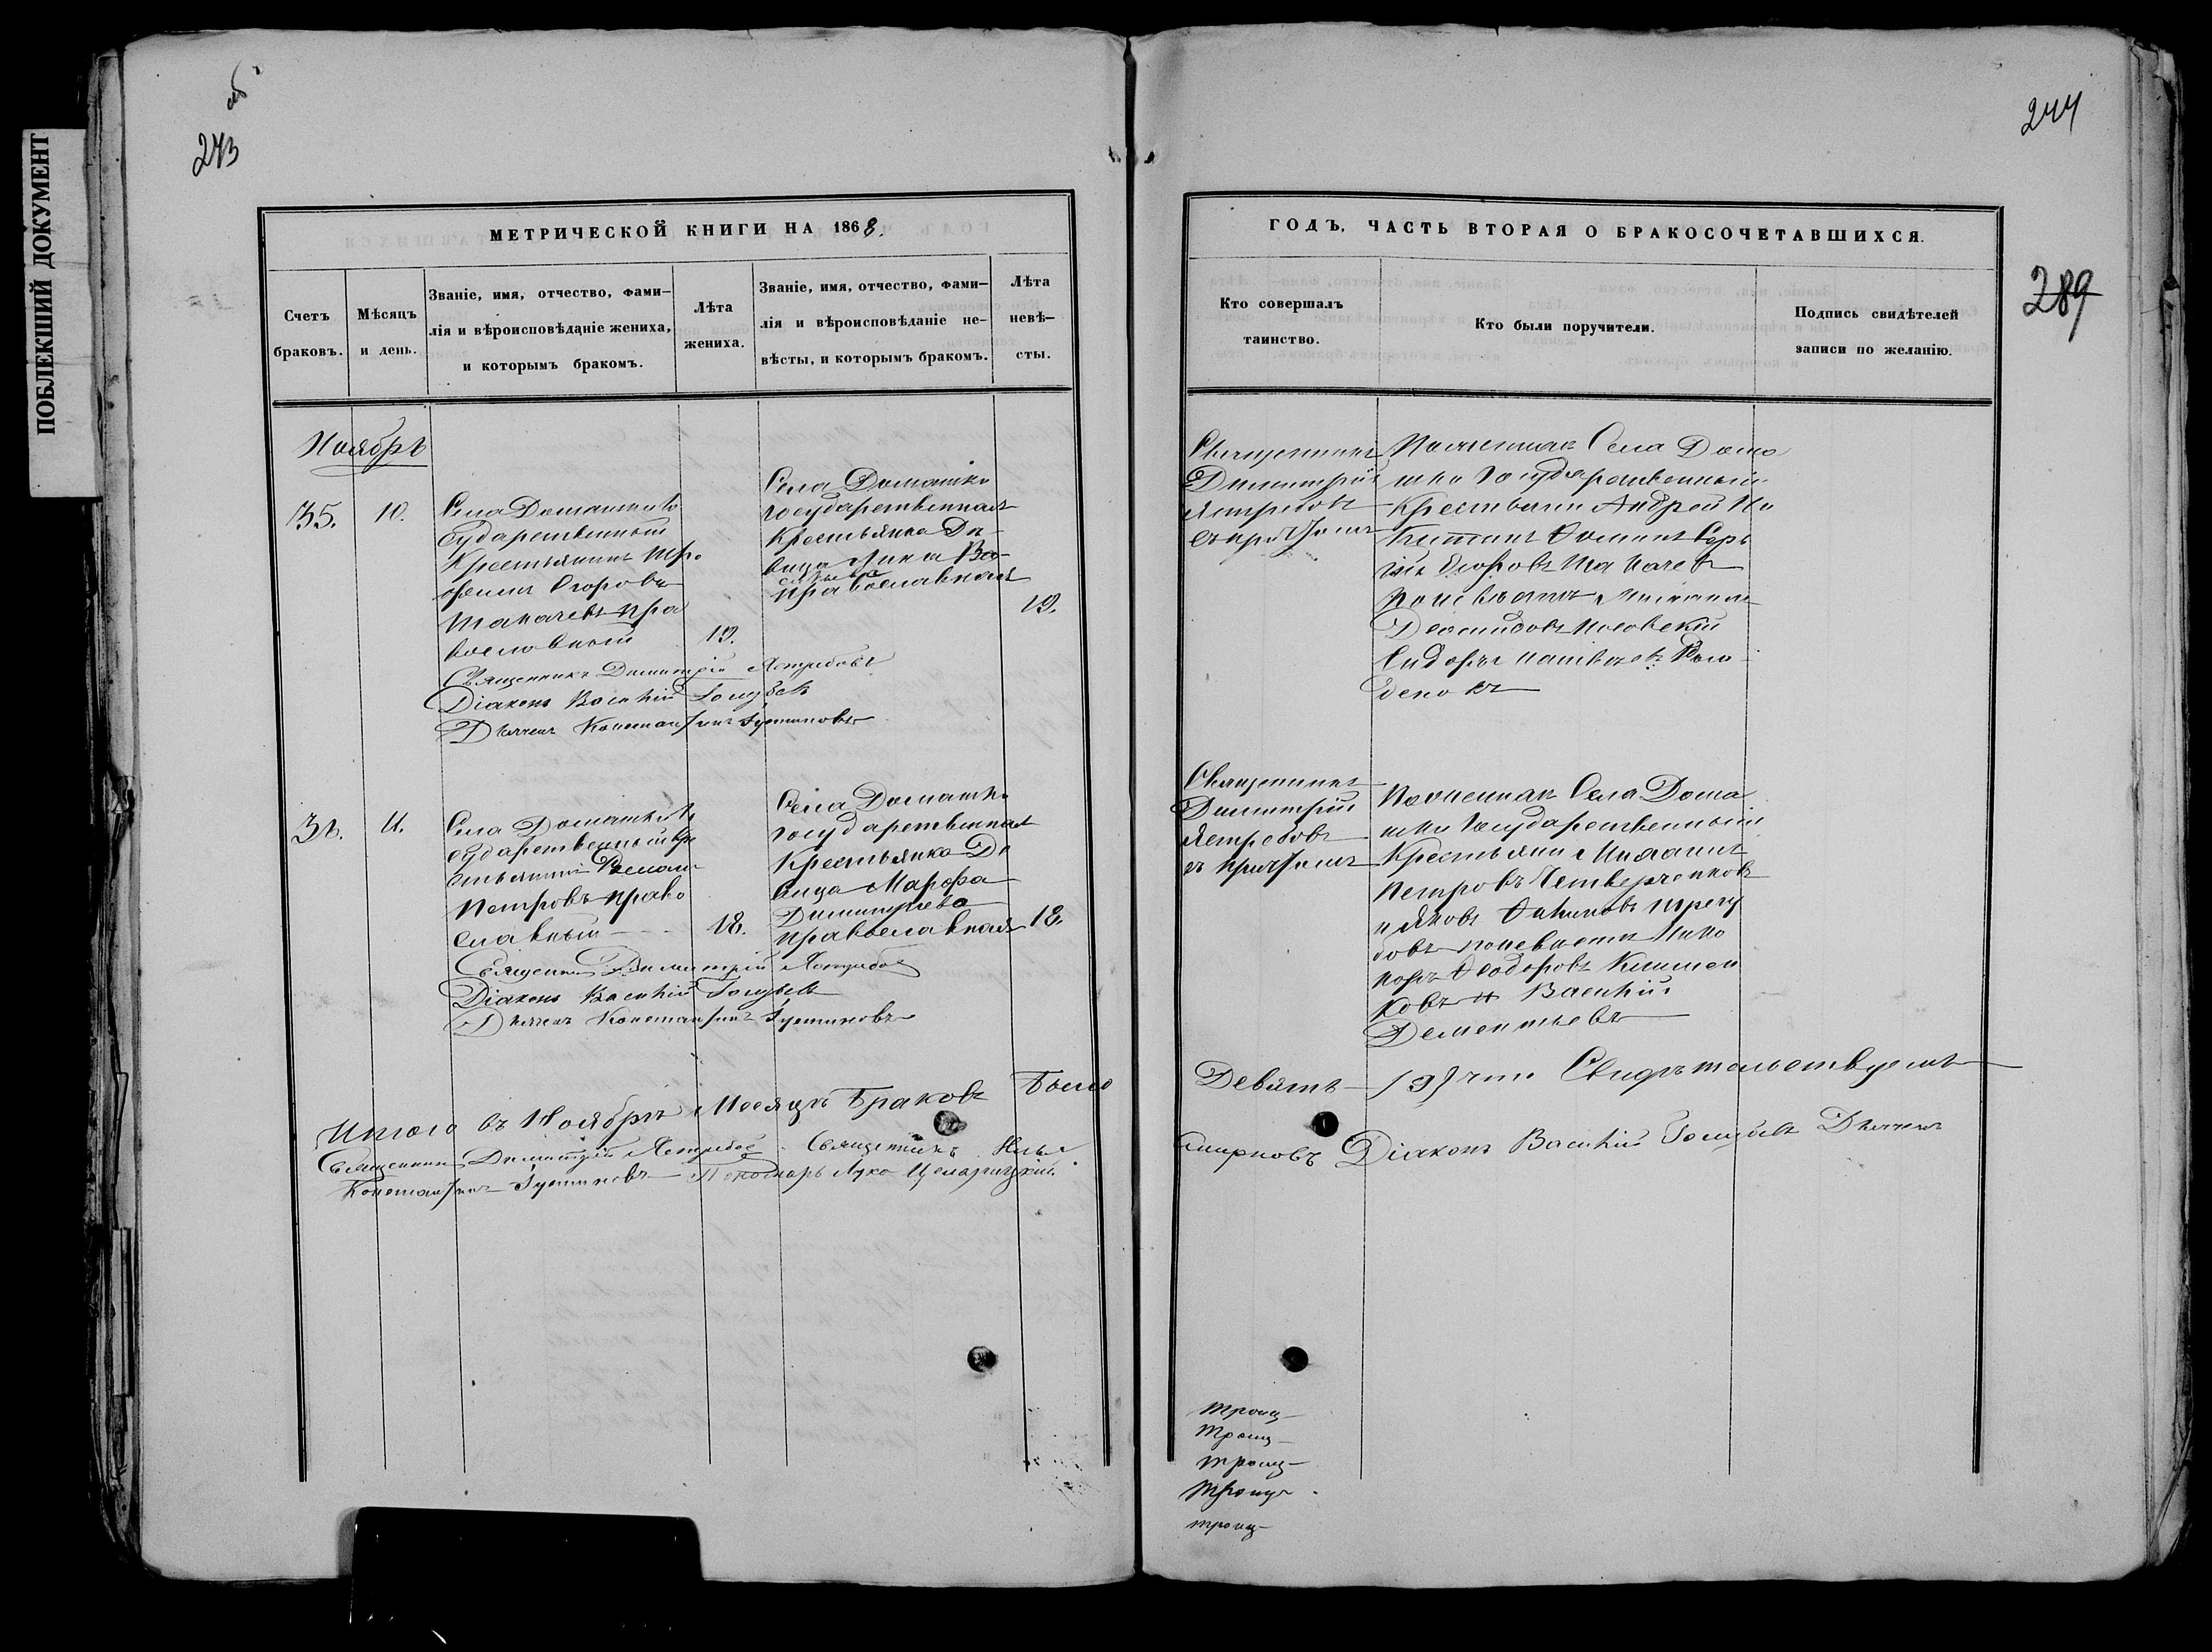 ПОБЛЕКШИЙ ДОКУМЕНТ
об
243
МЕТРИЧЕСКОЙ КНИГИ НА 1868.
Счетъ
браковъ.
Мѣсяцъ
и день.
Званіе, имя, отчество, фами-
лія и вѣроисповѣданіе жениха,
и которымъ бракомъ.
Лѣта
жениха.
Званіе, имя, отчество, фами-
лія и вѣроисповѣданіе не-
вѣсты, и которымъ бракомъ.
Лѣта
невѣ-
сты.
Ноябрь
35.
10.
Села Домашки Го
сударственный
Крестьянинъ Тро
фимъ Егоровъ
Токачевъ пра
вославный
19.
Села Домашки
государственная
Крестьянка Дѣ-
вица Анна Ва-
сильева
православная
19.
Священникъ Димитрій Ястребовъ
Діаконъ Василій Голубевъ
Дьячекъ Константинъ Густиновъ
36.
11.
Села Домашки Го
сударственный Кре
стьянинъ Роман
Петровъ право
славный
18.
Села Домашки
государственная
Крестьянка Дѣ
вица Марфа
Димитріева
православная
18.
Священникъ Димитрій Ястребовъ
Діаконъ Василій Голубевъ
Дьячекъ Константинъ Густиновъ
Итого въ Ноябрѣ Месяцѣ Браковъ Было
Священникъ Димитрій Ястребовъ Священникъ Илья
Константинъ Густиновъ Пономарь Лука Цемарицкій
244
289
ГОДЪ, ЧАСТЬ ВТОРАЯ О БРАКОСОЧЕТАВШИХСЯ.
Кто совершалъ
таинство.
Кто были поручители.
Подпись свидѣтелей
записи по желанію.
Священникъ
Димитрій
Ястребовъ
съ причтомъ
По женихѣ Села Дома
шки Государственный
Крестьянин Андрей Ни
Сер
гій Егоровъ Токачев
по невѣстѣ
Священникъ
Димитрій
Ястребовъ
съ причтомъ
По женихѣ Села Дома
шки Государственный
Крестьянин Михаилъ
Петровъ Четверченковъ
и Яковъ Трегу
бовъ по невѣсте Ника
норъ Ѳеодоровъ Климен
ковъ и Василій
Дементьевъ
Девять (9) что Свидѣтельствуемъ
Смирновъ Діаконъ Василій Голубевъ Дьячекъ
троиц-
троиц-
троиц-
троиц-
троиц-